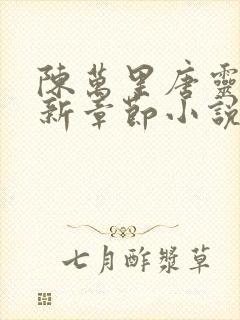 陳萬里唐靈
新章節小說
七月酢漿草